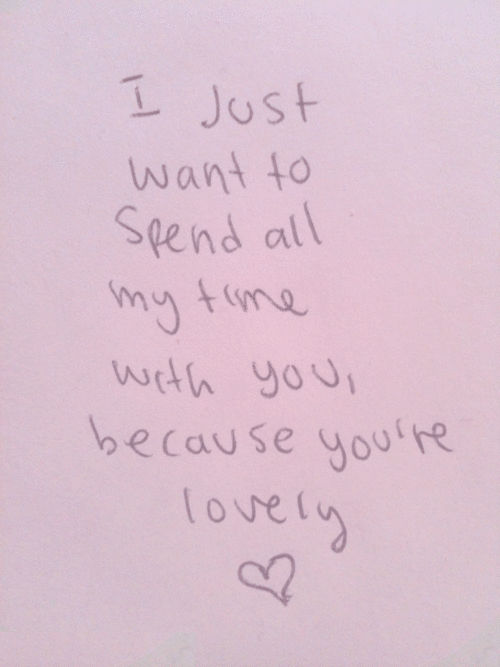 I Just
want to
Spend all
my time
with you,
because you're
lovely